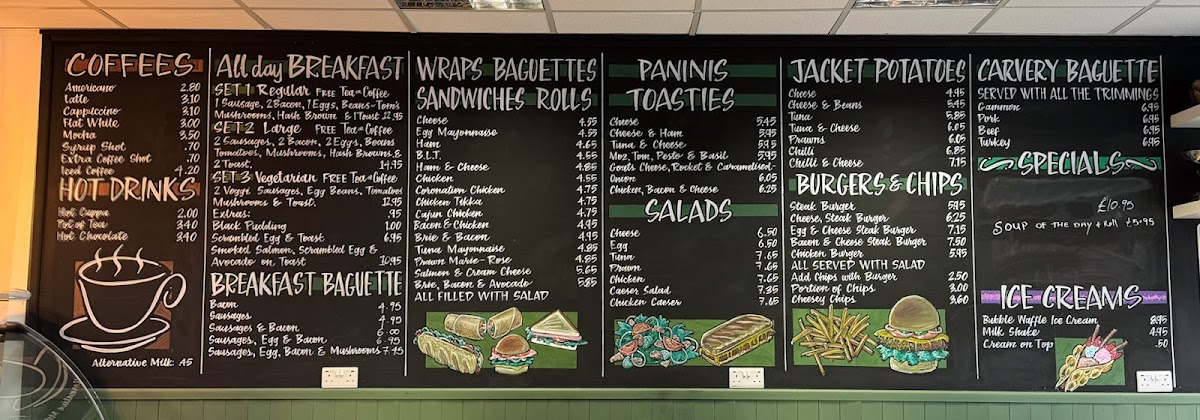 COFFEES
Americano 2.80
Latte 3.10
Cappuccino 3.10
Flat White 3.00
Mocha 3.50
Syrup Shot .70
Extra Coffee Shot .70
Iced Coffee 4.20
HOT DRINKS
Hot Cuppa 2.00
Pot of Tea 3.40
Hot Chocolate 3.40
Alternative Milk. .45
All day BREAKFAST
SET 1 Regular FREE Tea or Coffee
1 Sausage, 2 Bacon, 1 Egg, Beans - Tom's
Mushrooms, Hash Brown & 1 Toast 12.95
SET 2 Large FREE Tea or Coffee
2 Sausages, 2 Bacon, 2 Eggs, Beans
Tomatoes, Mushrooms, Hash Browns &
2 Toast. 14.95
SET 3 Vegetarian FREE Tea or Coffee
2 Vegge Sausages, Egg Beans, Tomatoes
Mushrooms & Toast. 12.95
Extras: .95
Black Pudding 1.00
Scrambled Egg & Toast 6.95
Smoked Salmon, Scrambled Egg &
Avocado on Toast 10.95
BREAKFAST BAGUETTE
Bacon 4.95
Sausages 4.95
Sausages & Bacon 6.00
Sausages, Egg & Bacon 6.95
Sausages, Egg, Bacon & Mushrooms 7.45
WRAPS BAGUETTES
SANDWICHES ROLLS
Cheese 4.55
Egg Mayonnaise 4.55
Ham 4.65
B.L.T. 4.55
Ham & Cheese 4.85
Chicken 4.55
Coronation Chicken 4.75
Chicken Tikka 4.75
Cajun Chicken 4.75
Bacon & Chicken 4.95
Brie & Bacon 4.95
Tuna Mayonnaise 4.85
Prawn Marie-Rose 4.85
Salmon & Cream Cheese 5.65
Brie, Bacon & Avocado 5.85
ALL FILLED WITH SALAD
PANINIS
TOASTIES
Cheese 5.45
Cheese & Ham 5.95
Tuna & Cheese 5.95
Moz, Tom, Pesto & Basil 5.95
Goats Cheese, Rocket & Caramelised
Onion 6.05
Chicken, Bacon & Cheese 6.25
SALADS
Cheese 6.50
Egg 6.50
Tuna 7.65
Prawn 7.65
Chicken 7.65
Caeser Salad 7.85
Chicken Caeser 7.65
JACKET POTATOES
Cheese 4.95
Cheese & Beans 5.45
Tuna 5.85
Tuna & Cheese 6.05
Prawns 6.05
Chilli 6.85
Chilli & Cheese 7.15
BURGERS & CHIPS
Steak Burger 5.95
Cheese, Steak Burger 6.25
Egg & Cheese Steak Burger 7.15
Bacon & Cheese Steak Burger 7.50
Chicken Burger 5.95
ALL SERVED WITH SALAD
Add Chips with Burger 2.50
Portion of Chips 3.00
Cheesey Chips 3.60
CARVERY BAGUETTE
SERVED WITH ALL THE TRIMMINGS
Gammon 6.95
Pork 6.95
Beef 6.95
Turkey 6.95
SPECIALS
£10.95
SOUP OF THE DAY & Roll £5.95
ICE CREAMS
Bubble Waffle Ice Cream 8.95
Milk Shake 4.95
Cream on Top .50